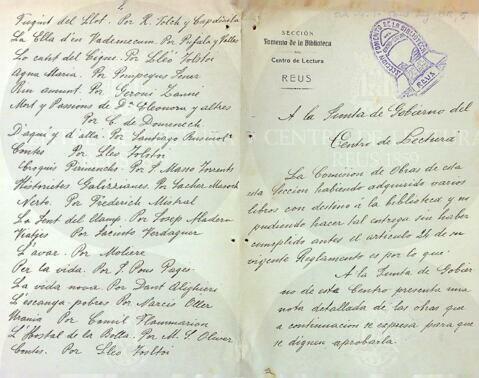 2
Fugint del Llot. Por R. Folch y Capdevila
La Ella d'en Vademecum. Por Pufala y Valles
Lo cant del Cigne. Por Lleo Tolstoi
Agna Maria. Por Pompeyus Gener
Ran amunt. Por Geroni Zanné
Mort y Passions de Dª Eleonora y altres
Por E. de Domenech
D'aquí y d'alla. Por Santiago Rusiñol
Contes Por Lleo Tolstoi
Croquis Pirinencs. Por J. Masso Torrents
Historietes Galitzianes. Por Sacher Masoch
Nerto. Por Frederich Mistral
La Gent del Llamp. Por Josep Madern
Viatjes Por Jacinto Verdaguer
L'avar. Por Moliere
Per la vida. Por J. Pons Pages
La vida nova. Por Dant Alighieri
L'escanya-pobres. Por Narcis Oller
Urania Por Camil Flammarion
L'Hostal de la Bolla. Por M. S. Oliver
Contes. Por Lleo Tolstoi
SECCIÓN
Fomento de la Biblioteca
Centro de Lectura
REUS
SECCION FOMENTO DE LA BIBLIOTECA
REUS
A la Junta de Gobierno del
Centro de Lectura
La Comision de Obras de esta
esta Seccion habiendo adquirido varios
libros con destino á la biblioteca y no
pudiendo hacer tal entrega sin haber
cumplido antes el articulo 24 de su
vigente Reglamento es por lo que:
A la Junta de Gobier
no de este Centro presenta una
nota detallada de las obras que
a continuacion se expresa para que
se dignen aprobarla.
CENTRO DE LECTURA
REUS